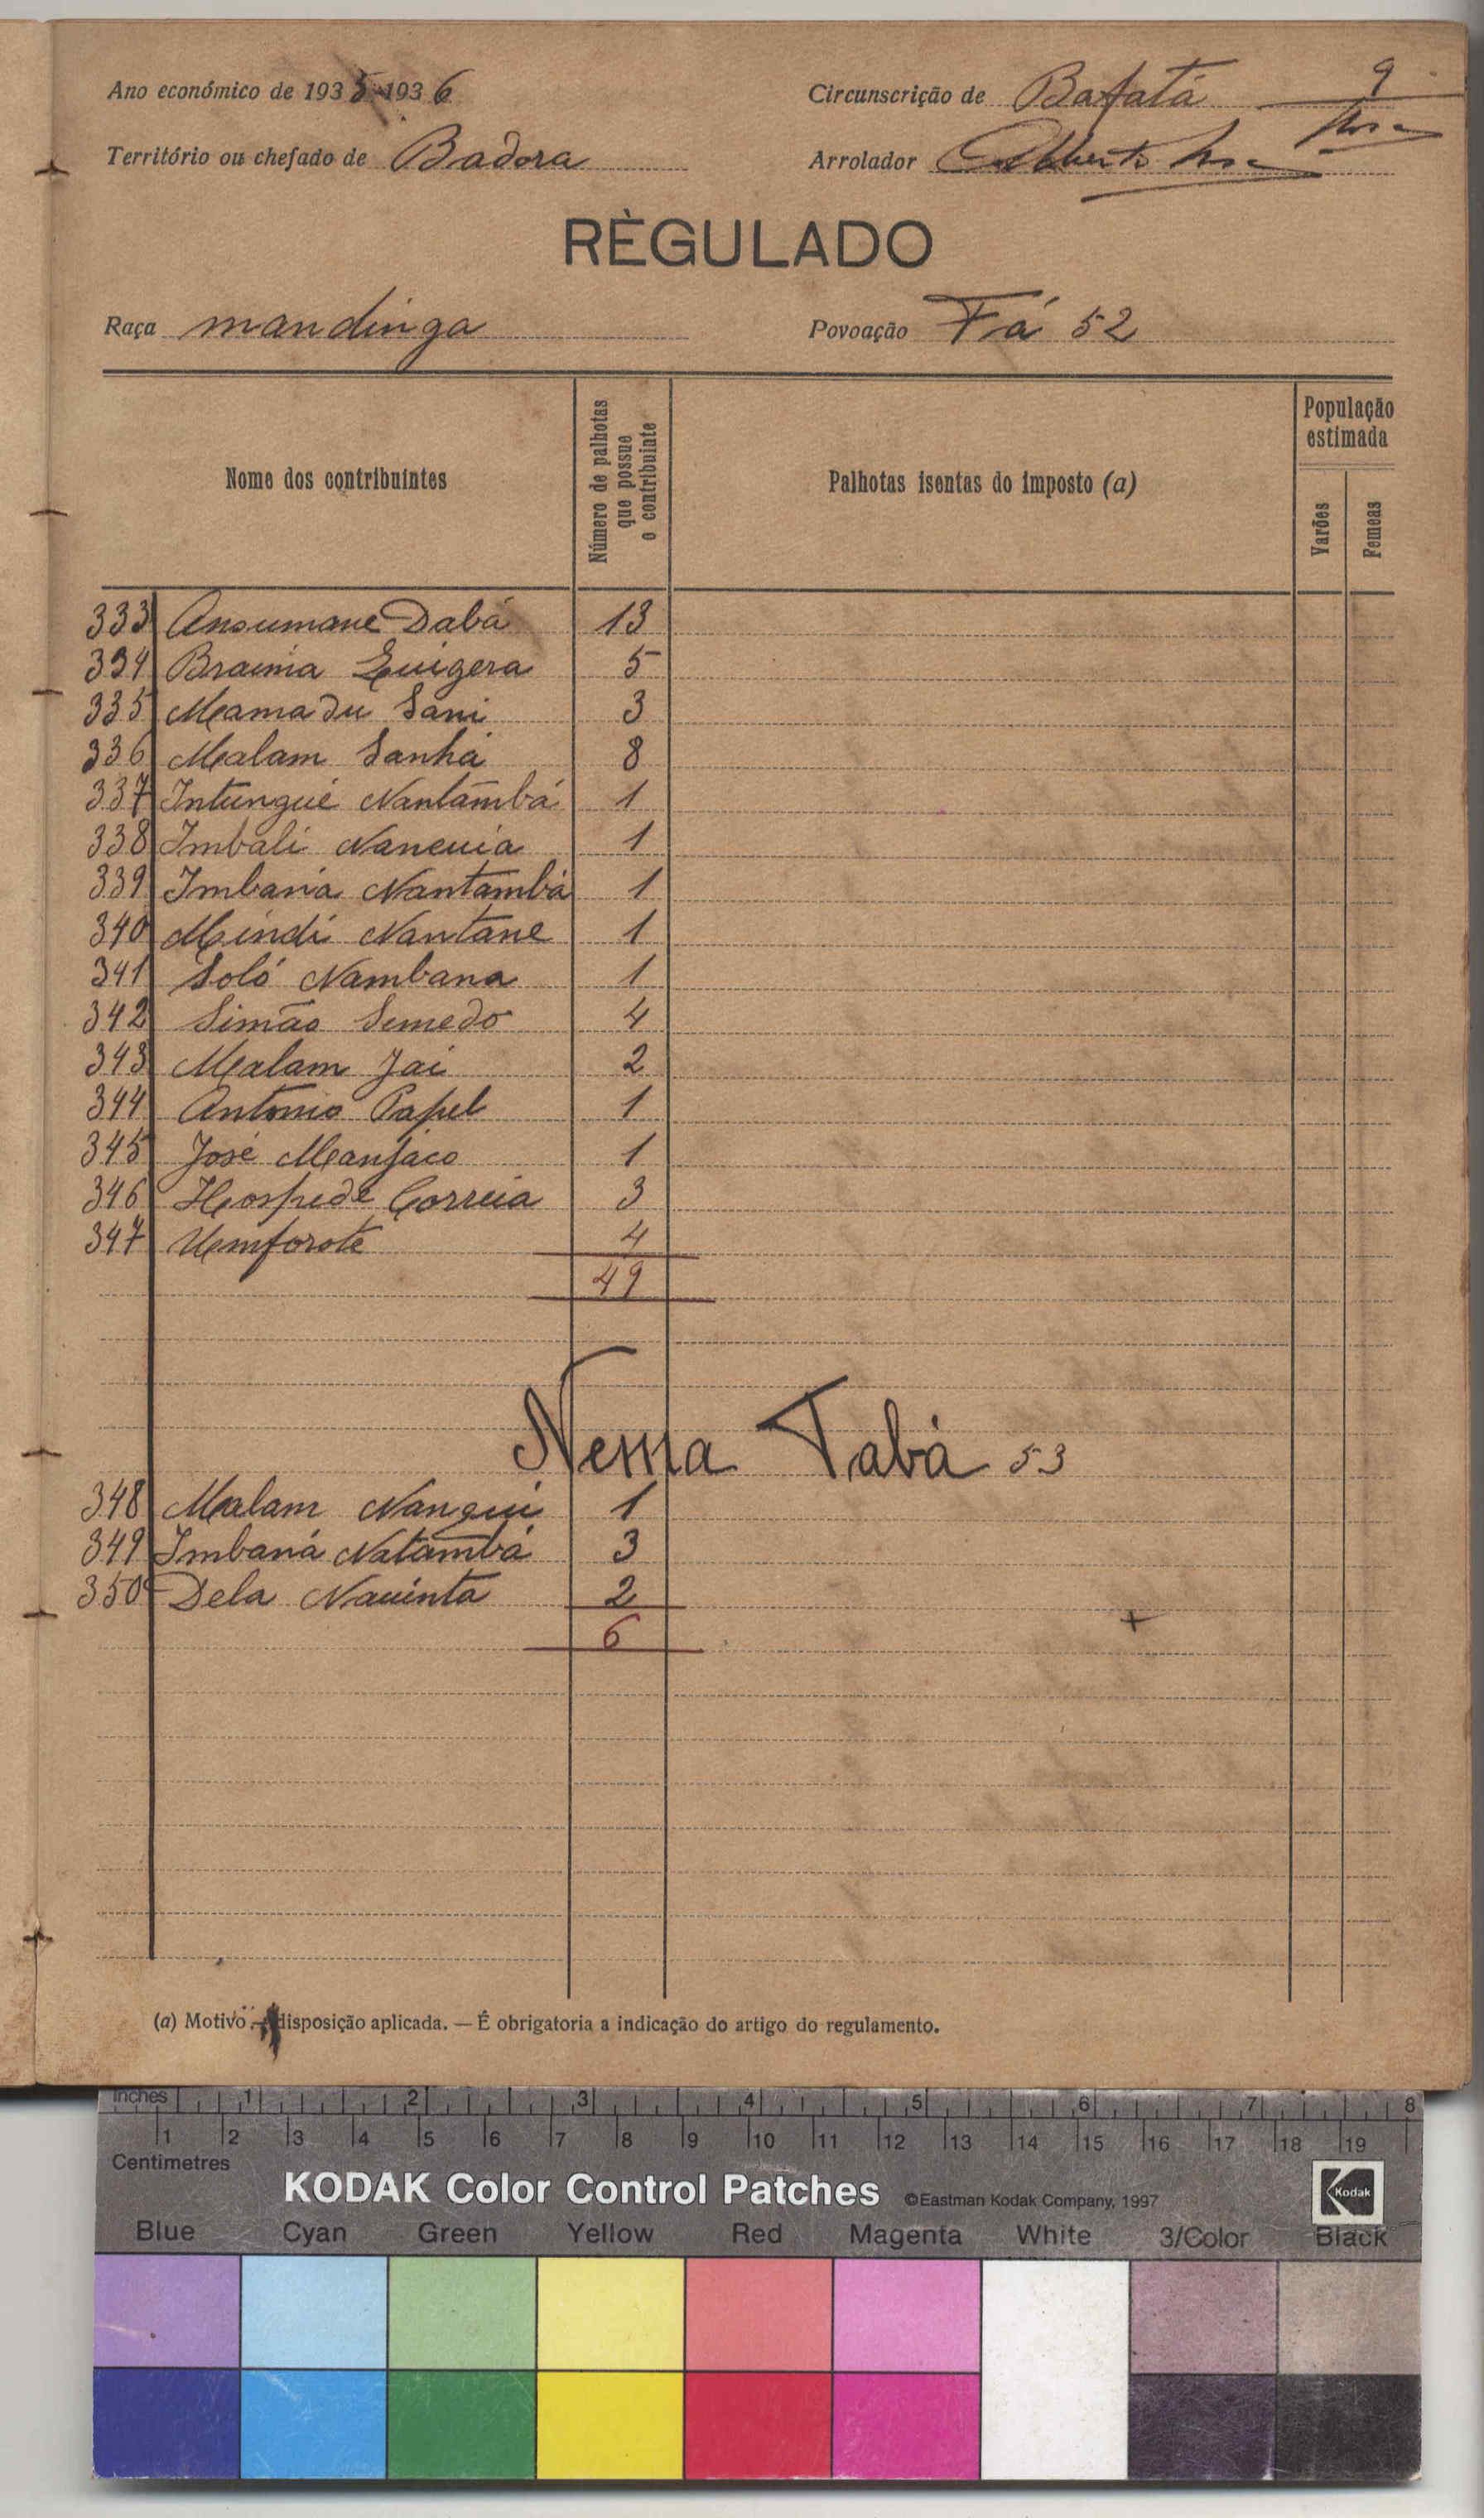 Ano económico de 1935-1936
Circunscrição de Bafatá
9
Território ou chefado de Badora
Arrolador Alberto
RÈGULADO
Raça mandinga
Povoação Fá 52
Nome dos contribuintes
Número de palhotas que possue o contribuinte
Palhotas isentas do imposto (a)
População estimada
Varões
Femeas
333 Ansumane Dabá 13
334 Braima 5
335 Mamadu Sani 3
336 Malam Sanhá 8
337 Intungué Nantambá 1
338 Imbali 1
339 Imbaná Nantambá 1
340 Mindi Nantane 1
341 Soló Nambana 1
342 Simão Semedo 4
343 Malam Jai 2
344 Antonio Papel 1
345 José Manjaco 1
346 Hospede Correia 3
347 4
49
Nema Tabá 53
348 Malam Nangui 1
349 Imbaná Natambá 3
350 Dela 2
6
(a) Motivo disposição aplicada. — É obrigatoria a indicação do artigo do regulamento.
Inches 1 2 3 4 5 6 7 8
1 2 3 4 5 6 7 8 9 10 11 12 13 14 15 16 17 18 19
Centimetres
KODAK Color Control Patches ©Eastman Kodak Company, 1997
Kodak
Blue Cyan Green Yellow Red Magenta White 3/Color Black